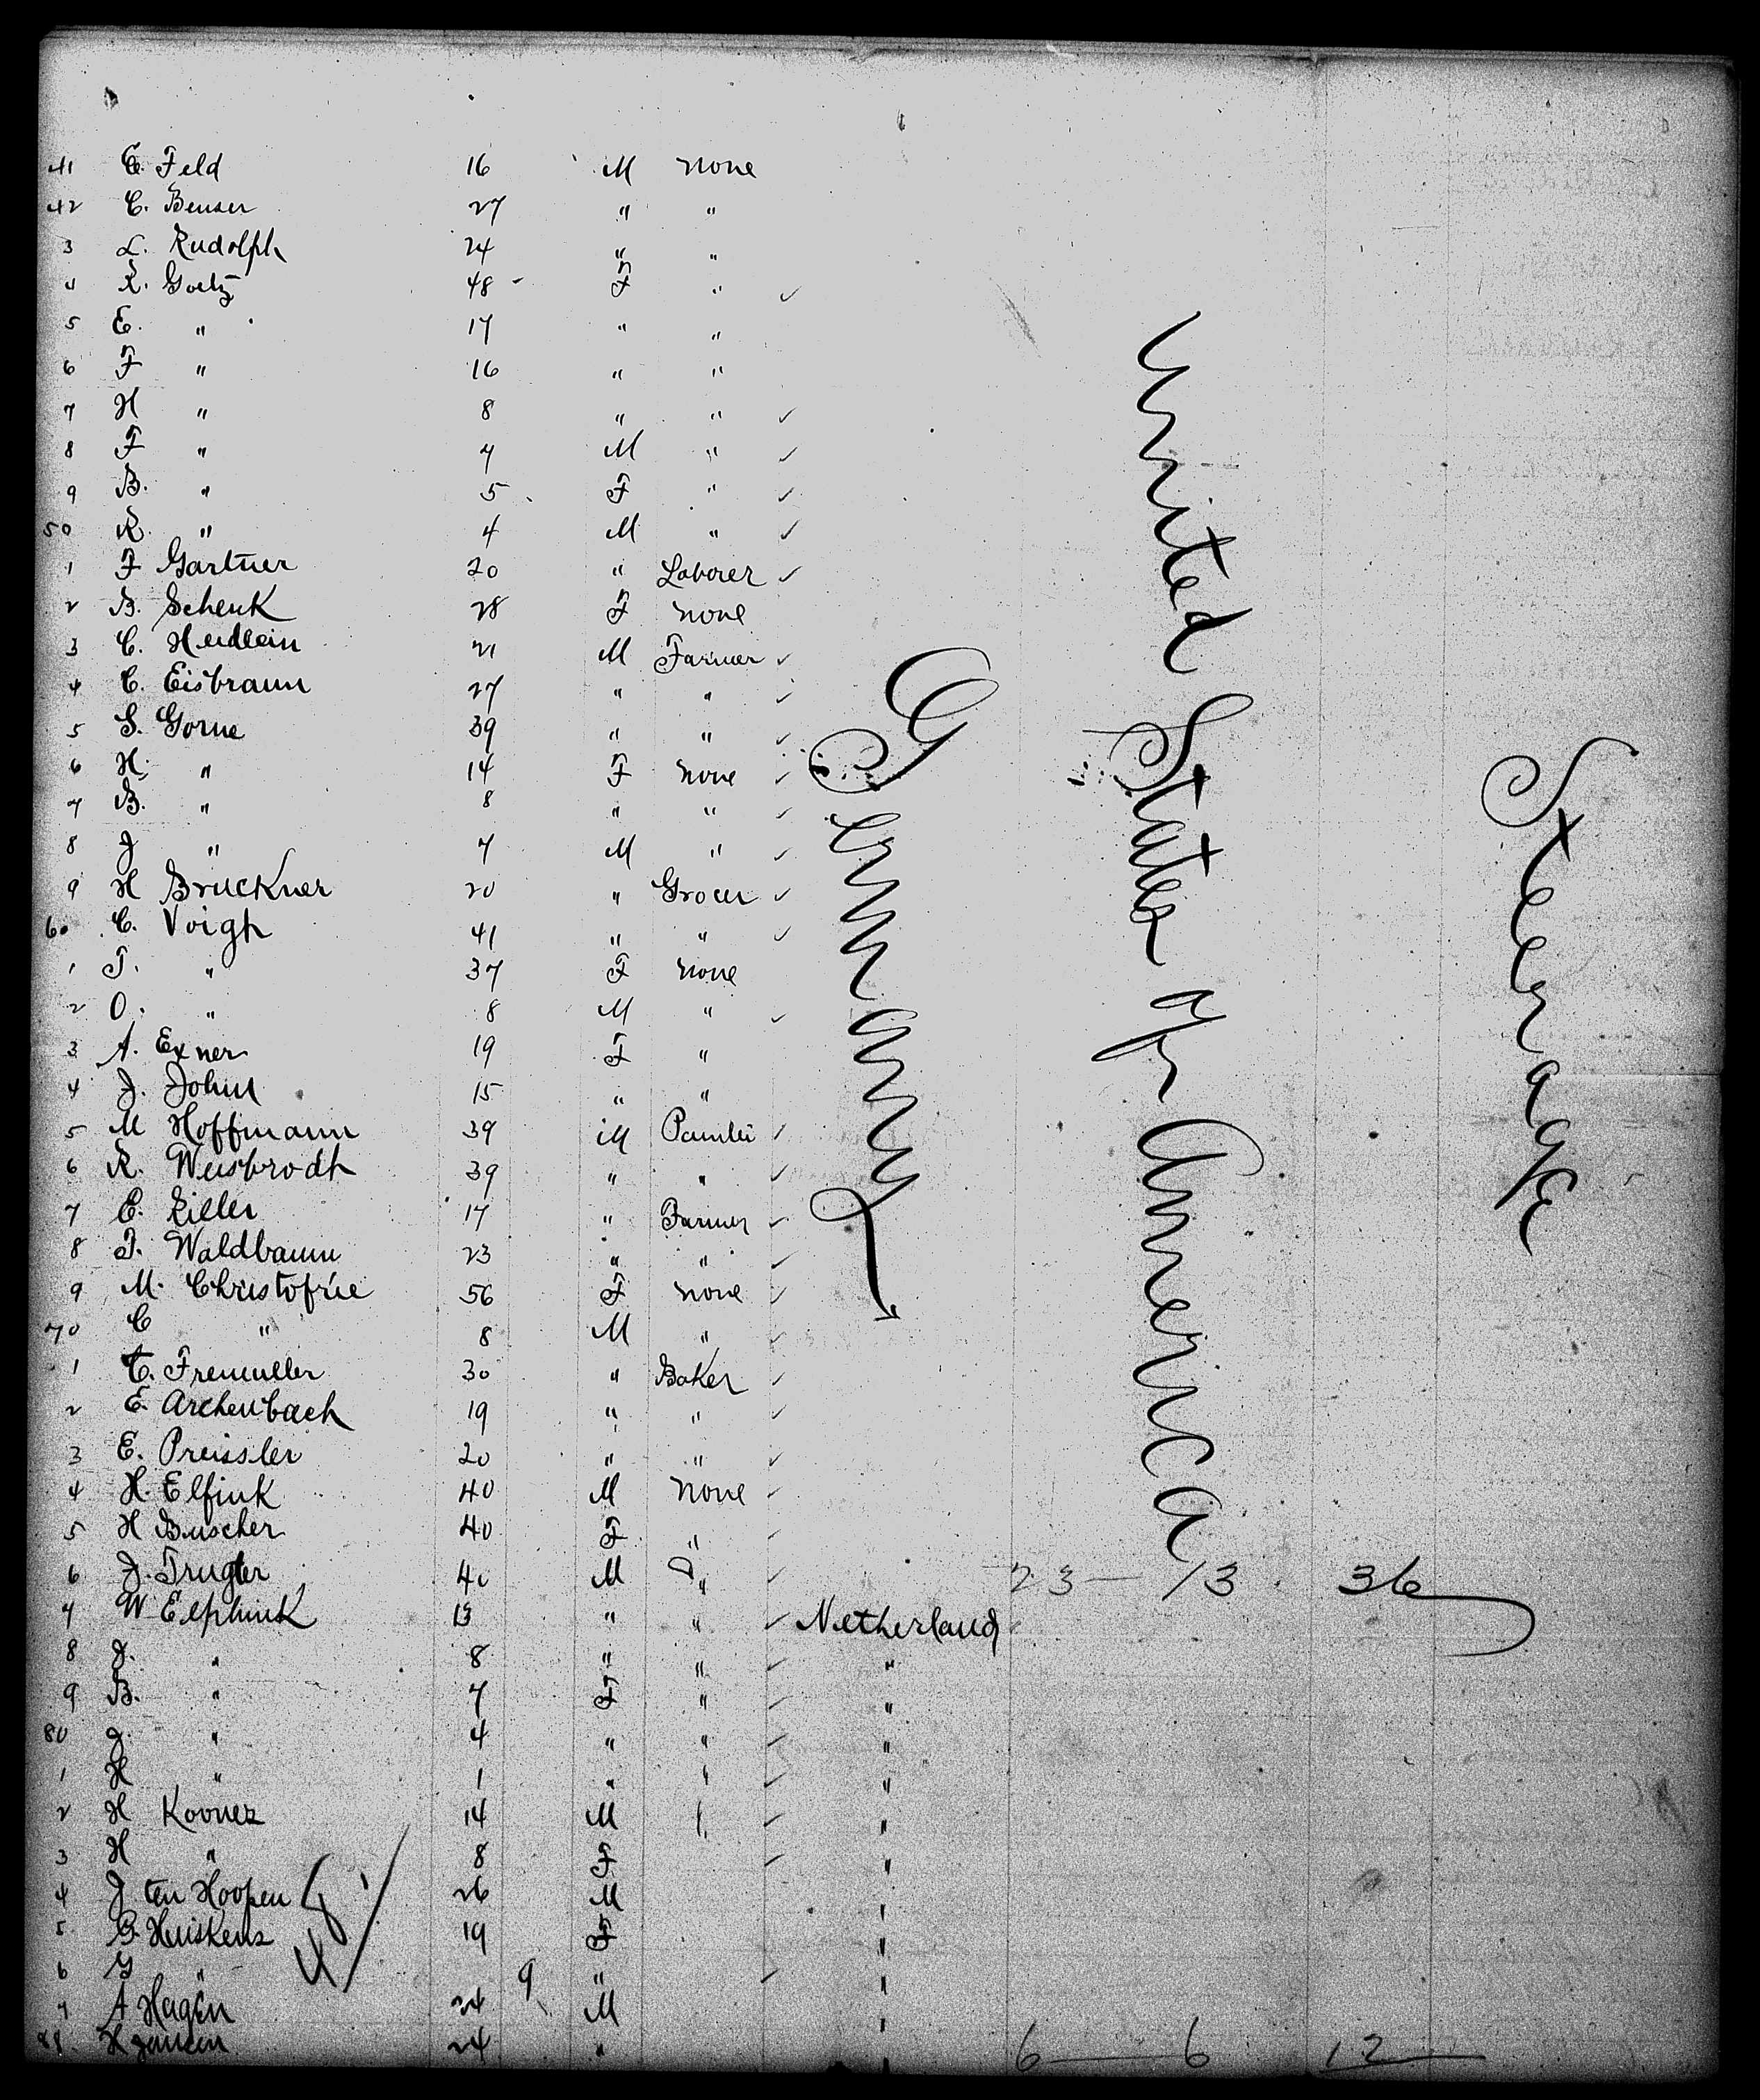 41 E. Feld 16 M none
42 C. Beuser 27 " "
3 L. Rudolph 24 " "
4 R. Goetz 48 - F " ✓
5 E. " 17 " "
6 F " 16 " "
7 H " 8 " " ✓
8 F " 7 M " ✓
9 B. " 5 F " ✓
50 R. " 4 M " ✓
1 F Gartner 20 " Laborer ✓
2 B. Schenk 28 F none
3 C. Heidlein 21 M Farmer ✓
4 C. Eisbraun 27 " " ✓
5 S. Gorne 39 " " ✓
6 H. " 14 F none ✓
7 B. " 8 " " ✓
8 J " 7 M " ✓
9 H Bruckner 20 " Grocer ✓
60 C. Voigh 41 " " ✓
1 T. " 37 F none
2 O. " 8 M " ✓
3 A. Exner 19 F "
4 J. John 15 " "
5 M Hoffmann 39 M Painter ✓
6 R. Weisbrodt 39 " " ✓
7 E. Ziller 17 " Farmer ✓
8 J. Waldbaum 23 " " ✓
9 M. Christofrie 56 F none ✓
70 C " 8 M " ✓
1 C. Fremuller 30 " Baker ✓
2 E. Archenbach 19 " " ✓
3 E. Preissler 20 " " ✓
4 H. Elfink 40 M none ✓
5 H Buscher 40 F " ✓
6 J. Trugter 40 M " ✓ 23 — 13 36
7 W Elphink 13 " " ✓ Netherland
8 J. " 8 " " ✓ "
9 B. " 7 F " ✓ "
80 J. " 4 " " ✓ "
1 H " 1 " " ✓ "
2 H Kooner 14 M " ✓ "
3 H " 8 F ✓ "
4 J ten Hoopen 26 M "
5 G. Huiskens 19 F "
6 G " 9 " ✓ "
7 A Hagen 24 M "
88. H Jansen 24 " " 6 — 6 12
Germany
United States of America
Steerage